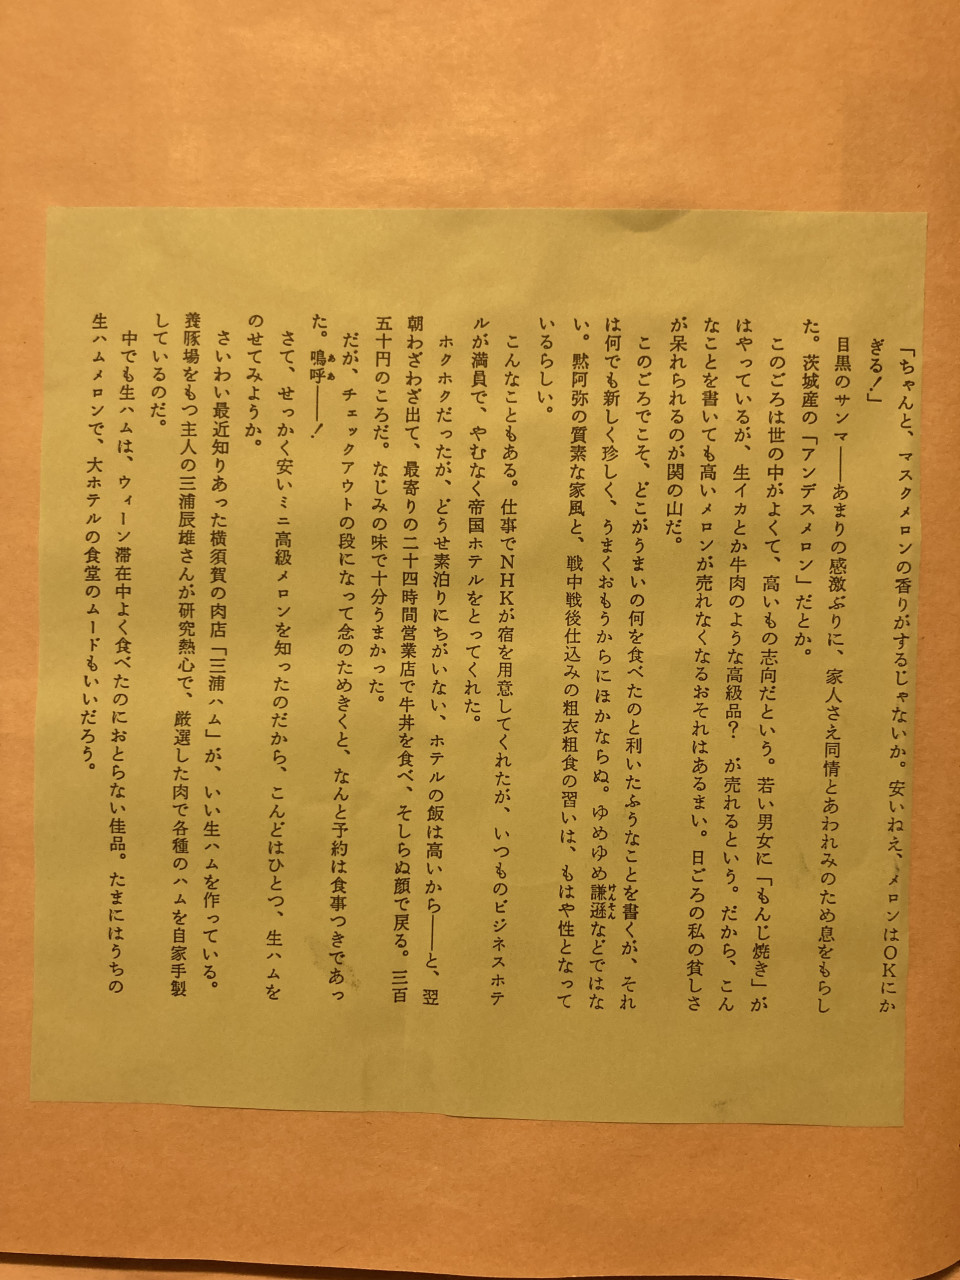 「ちゃんと、マスクメロンの香りがするじゃないか。安いねえ、メロンはOKにか
ぎる！」
目黒のサンマ――あまりの感激ぶりに、家人さえ同情とあわれみのため息をもらし
た。茨城産の「アンデスメロン」だとか。
このごろは世の中がよくて、高いもの志向だという。若い男女に「もんじ焼き」が
はやっているが、生イカとか牛肉のような高級品？　が売れるという。だから、こん
なことを書いても高いメロンが売れなくなるおそれはあるまい。日ごろの私の貧しさ
が呆れられるのが関の山だ。
このごろでこそ、どこがうまいの何を食べたのと利いたふうなことを書くが、それ
は何でも新しく珍しく、うまくおもうからにほかならぬ。ゆめゆめ謙遜などではな
い。黙阿弥の質素な家風と、戦中戦後仕込みの粗衣粗食の習いは、もはや性となって
いるらしい。
こんなこともある。仕事でNHKが宿を用意してくれたが、いつものビジネスホテ
ルが満員で、やむなく帝国ホテルをとってくれた。
ホクホクだったが、どうせ素泊りにちがいない、ホテルの飯は高いから――と、翌
朝わざわざ出て、最寄りの二十四時間営業店で牛丼を食べ、そしらぬ顔で戻る。三百
五十円のころだ。なじみの味で十分うまかった。
だが、チェックアウトの段になって念のためきくと、なんと予約は食事つきであっ
た。嗚呼――！
さて、せっかく安いミニ高級メロンを知ったのだから、こんどはひとつ、生ハムを
のせてみようか。
さいわい最近知りあった横須賀の肉店「三浦ハム」が、いい生ハムを作っている。
養豚場をもつ主人の三浦辰雄さんが研究熱心で、厳選した肉で各種のハムを自家手製
しているのだ。
中でも生ハムは、ウィーン滞在中よく食べたのにおとらない佳品。たまにはうちの
生ハムメロンで、大ホテルの食堂のムードもいいだろう。